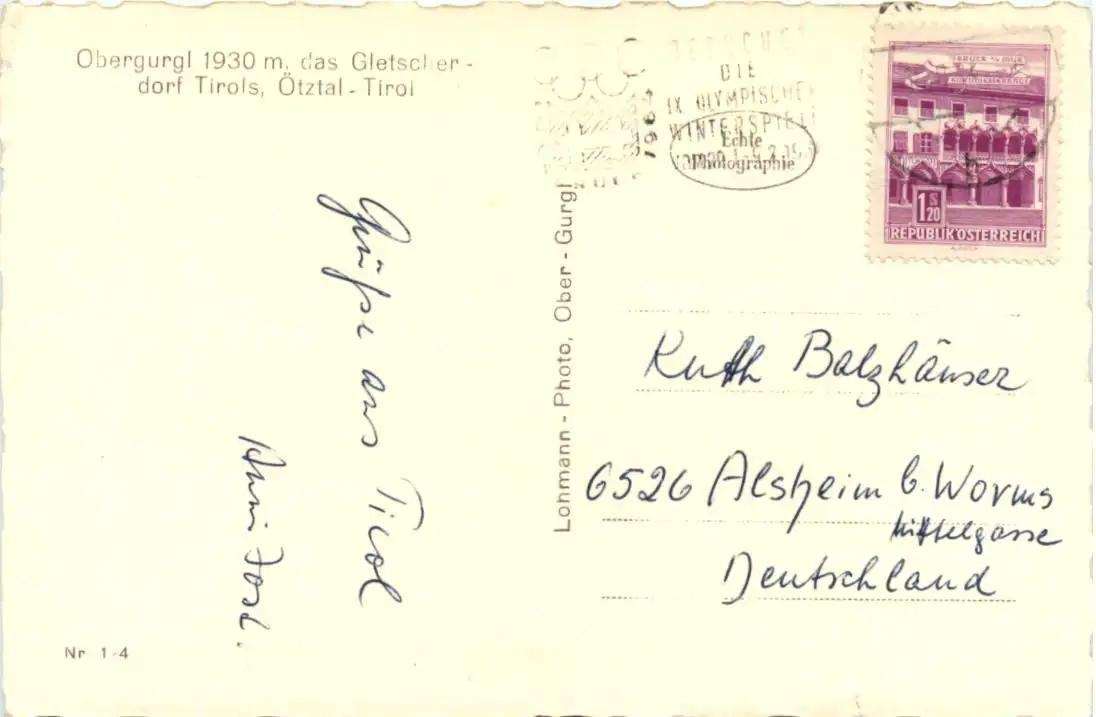 Obergurgl 1930 m, das Gletscher-
dorf Tirols, Ötztal - Tirol
BESUCHET
DIE
IX OLYMPISCHEN
WINTERSPIELE
1964
Echte
Photographie
BRUCK a/d MUR
KORNMESSERHAUS
1 S 20
REPUBLIK ÖSTERREICH
Grüße aus Tirol
Lohmann - Photo, Ober - Gurgl
Ruth Balzhäuser
6526 Alsheim b. Worms
Mittelgasse
Deutschland
Nr 1-4